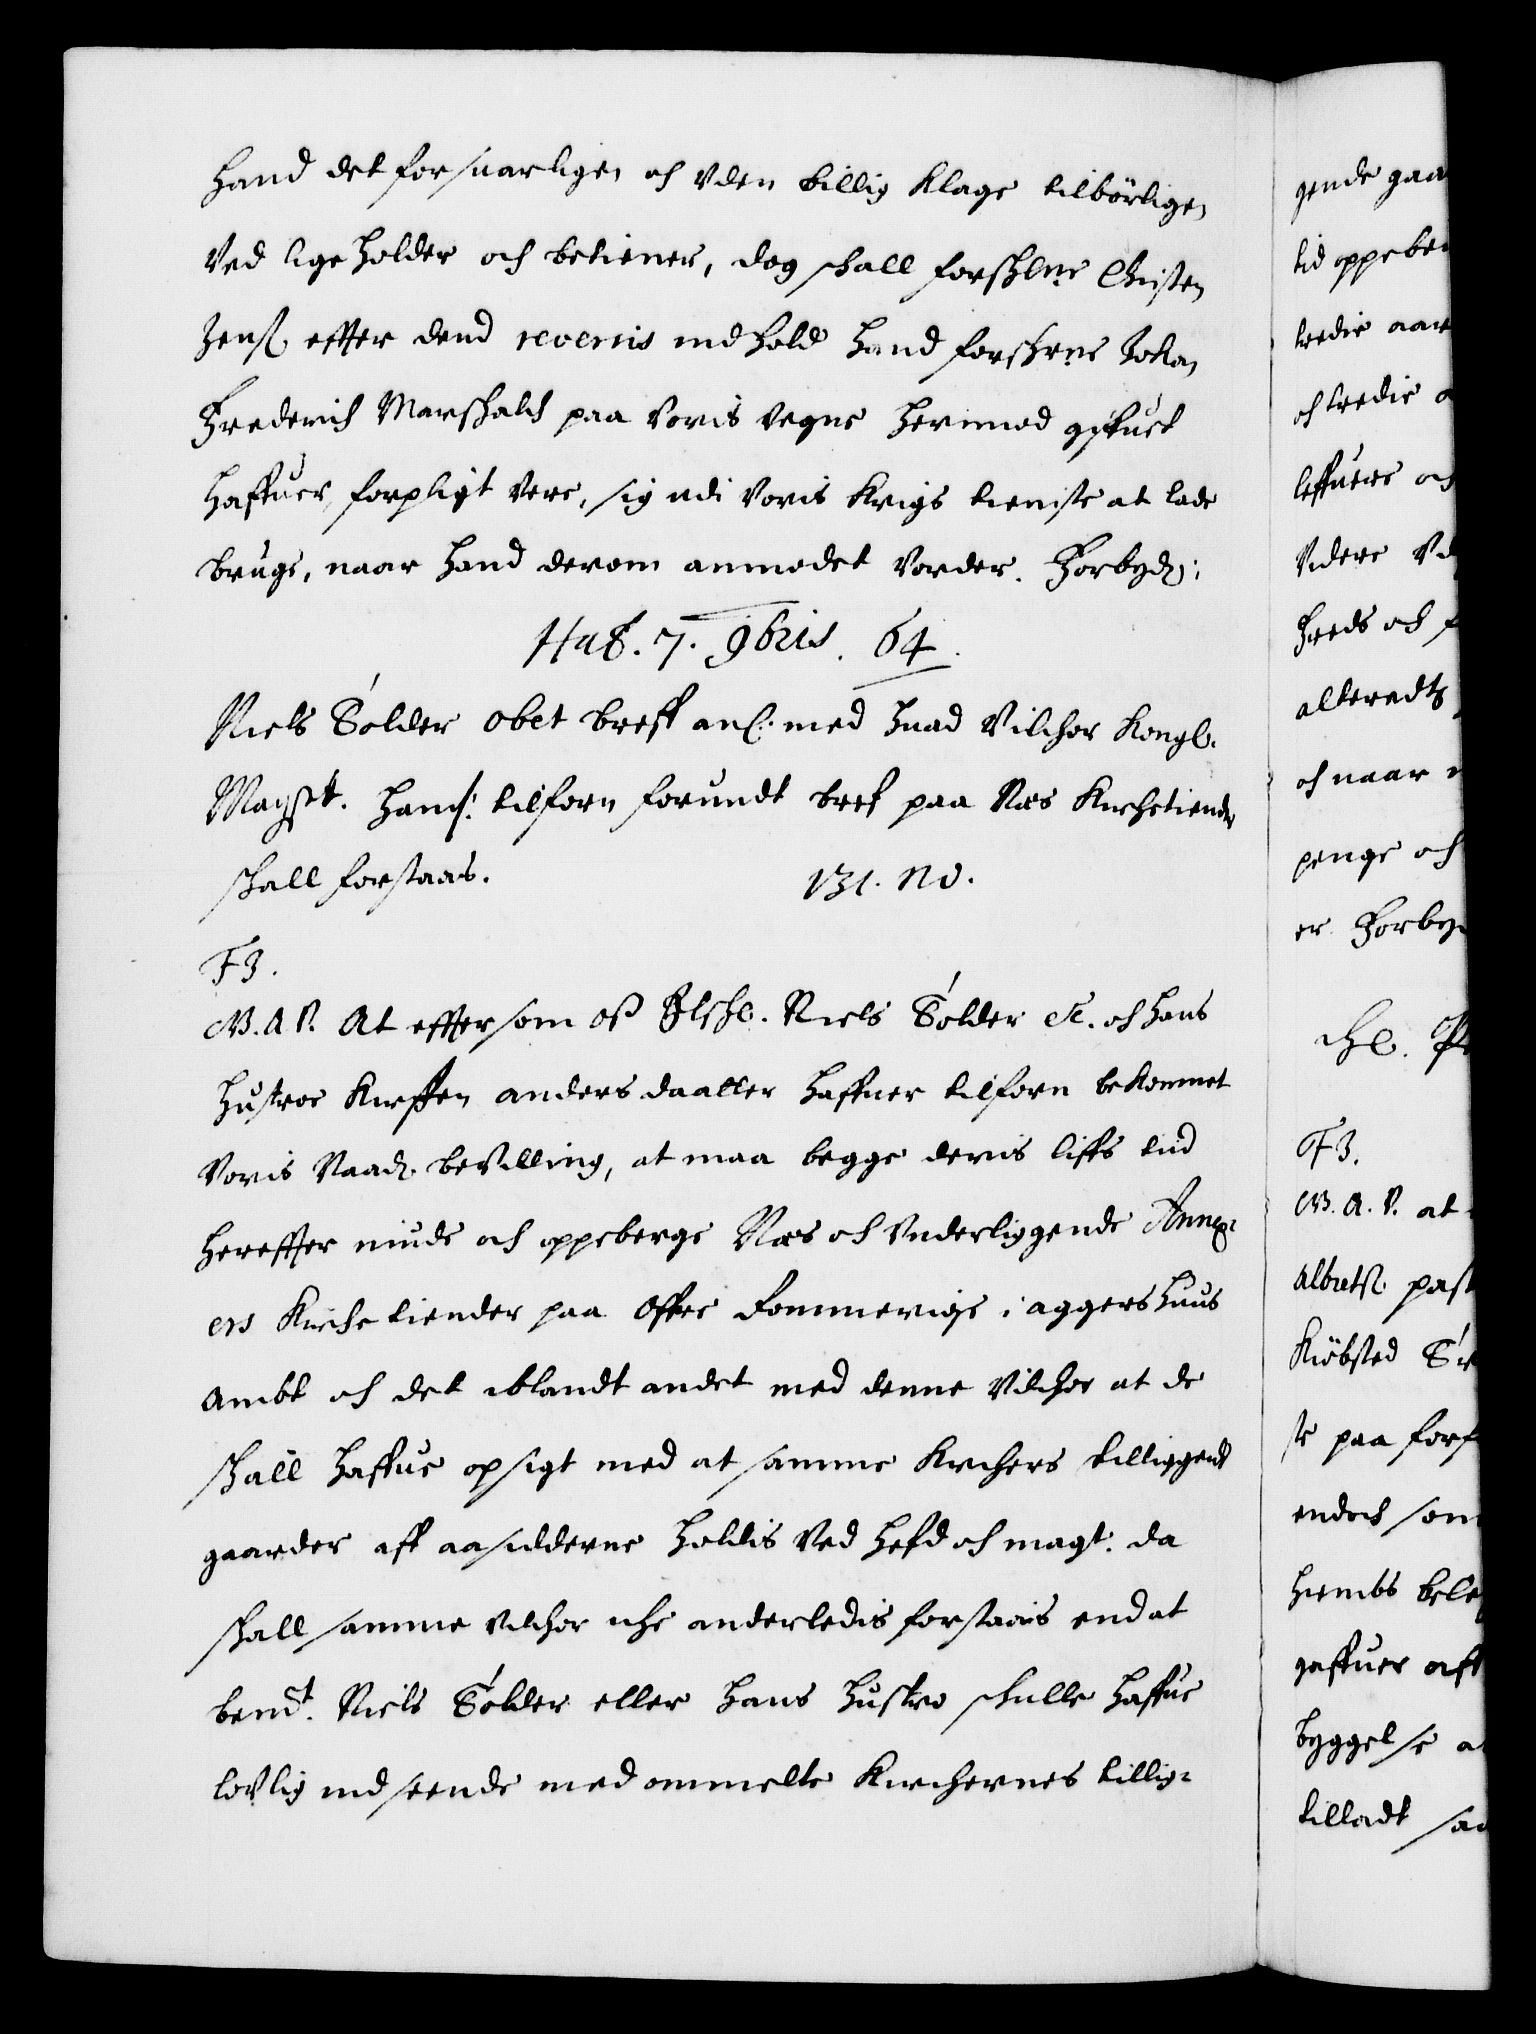 hand det forsuarligen och Vden billig Klage tilbörligen
Ved lige holder och betiener, dog schall forschrne Christen
Jenß. effter dend revertis indhold hand forschrne Johan
Frederich Marschalck paa Voris Vegne herimod giffuet
haffuer, forpligt Vere, sig udi Voris Krigs tieniste at lade
bruge, naar hand derom anmodet Vorder. Forbyd:
Haf. 7. 9bris. 64.
Niels Sölder obet breff anl. med huad Vilchor Kongl.
Mayst. ham tilforn forundt breff paa Næs Kirchetiender
schall forstaas. 131. No.
F3.
G. A. V. At effter som oß Elschl. Niels Sölder etc. och hans
hustroe Kirsten anders daatter haffuer tilforn bekommet
Voris Naad. beVilling, at maa begge deris liffs tiid
hereffter niude och oppeberge Næs och Vnderliggende Annex-
ers Kirche tiender paa offre Rommerige i aggershuus
Ambt och det iblandt andet med denne Vilchor at de
schall haffue opsigt med at samme Kirchers tilliggende
gaarder aff aasidderne holdis Ved hefd och magt. da
schall samme vilchor iche anderledis forstaais end at
bemt. Niels Sölder eller hans hustro schulle haffue
loVlig indseende med ommelte Kirchernes tillig-
gende gaa
tid oppeber
tredie aar
och tredie
leffuere och
Videre Vd
freds och f
alleredts
och naar
penge och
er Forby
F3.
G. A. V. at
Albretß. past
Kiöbsted
ste paa forf
endoch som
hiembs bele
gaffuer aff
byggelse a
tilladt saa